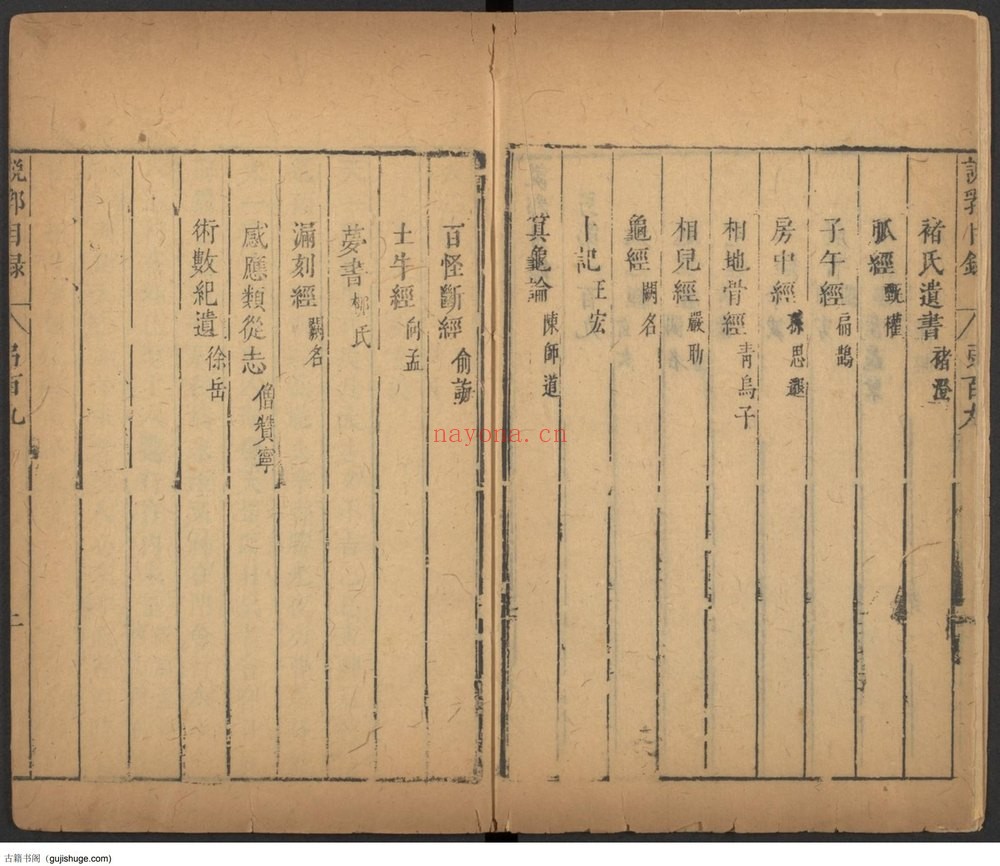 褚氏遺書 褚澄
脉經 甄權
子午經 扁鵲
房中經 孫思邈
相地骨經 青烏子
相兒經 嚴助
龜經 闕名
卜記 王宏
箕龜論 陳師道
百怪斷經 俞誨
土牛經 向孟
夢書
漏刻經 闕名
感應類從志 僧贊寧
術數紀遺 徐岳
說郛目錄 弓百九 二
nayona.cn
古籍书阁（gujishuge.com)